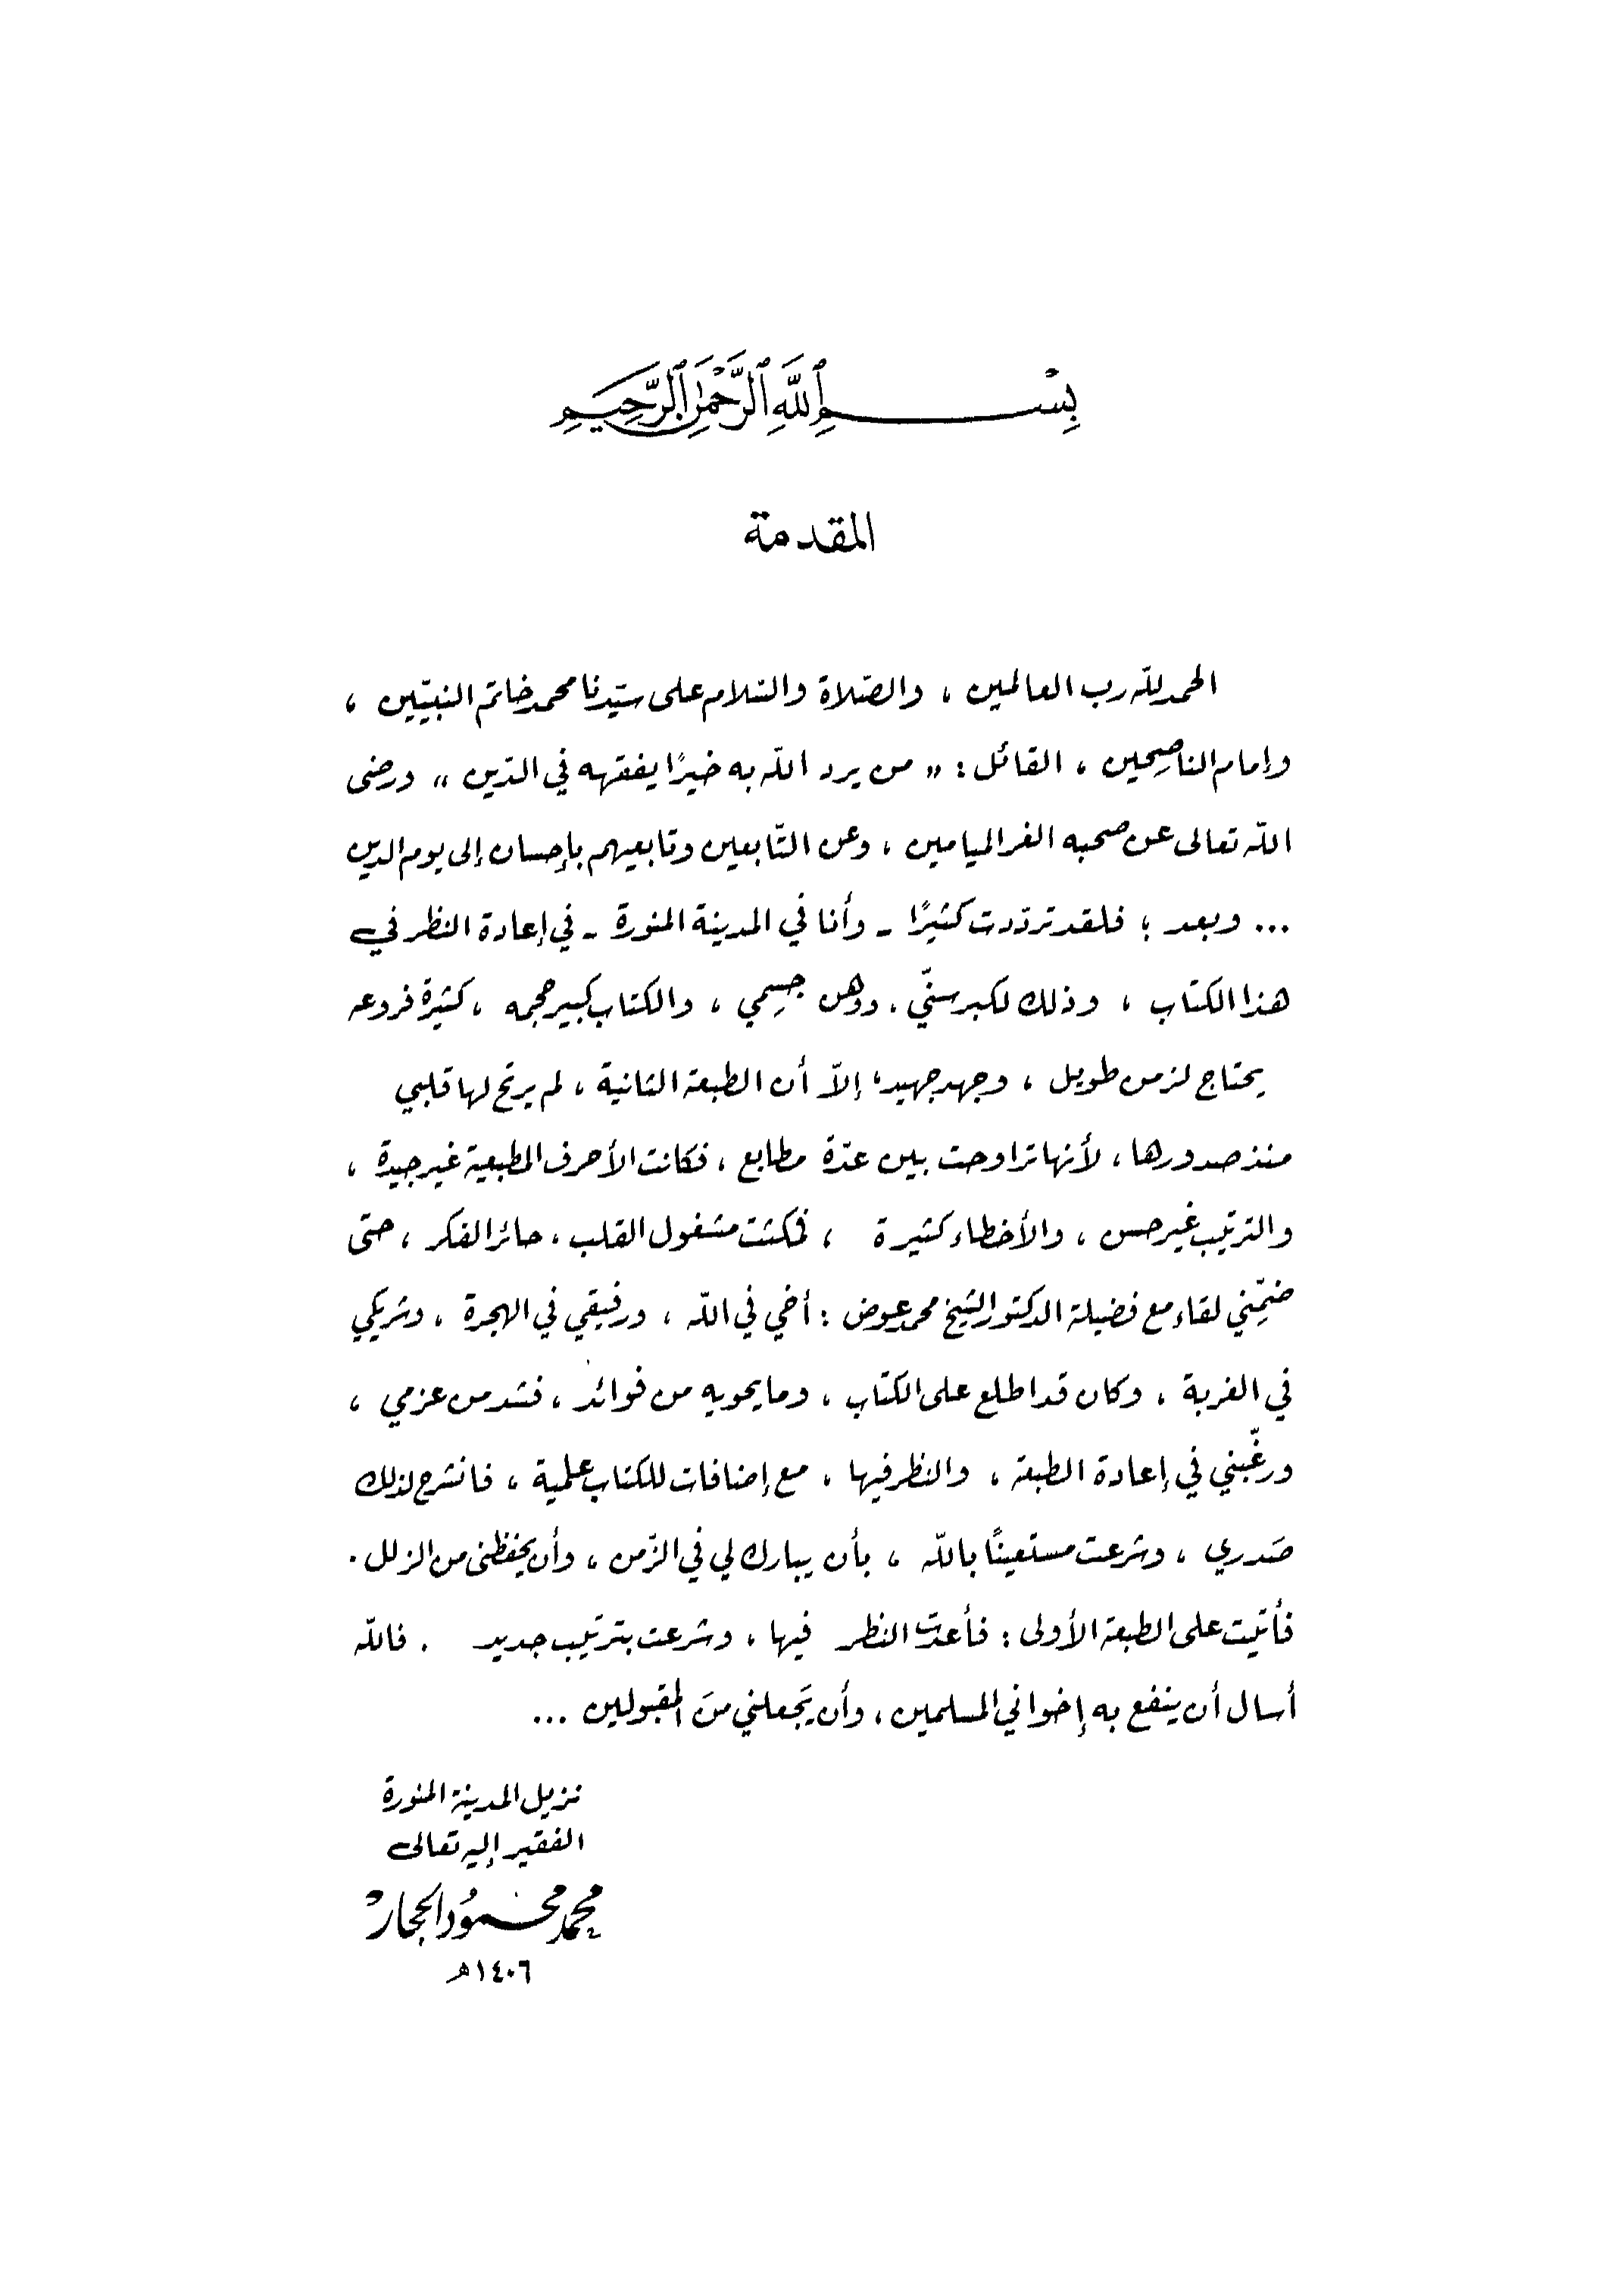 بِسْمِ ٱللَّهِ ٱلرَّحْمَٰنِ ٱلرَّحِيمِ
المقدمة
الحمد لله رب العالمين ، والصّلاة والسّلام على سيّدنا محمد خاتم النبيّين ،
وإمام الناصِحين ، القائل : « من يرد اللّه به خيرًا يفقهه في الدّين » ورضى
اللّه تعالى عن صحبه الغر الميامين ، وعن التّابعين وتابعيهم بإحسان إلى يوم الدين
... وبعد ؛ فلقد تردّدت كثيرًا - وأنا في المدينة المنورة - في إعادة النظر في
هذا الكتاب ، وذلك لكبر سنّي ، ووهن جسِمي ، والكتاب كبير حجمه ، كثيرة فروعه
يحتاج لزمن طويل ، وجهد جهيد ، إلاّ أن الطبعة الثانية ، لم يرتح لها قلبي
منذ صدورها ، لأنها تراوحت بين عدّة مطابع ، فكانت الأحرف المطبعية غير جيدة ،
والترتيب غير حسن ، والأخطاء كثيرة ، فمكثت مشغول القلب ، حائر الفكر ، حتى
ضمِّني لقاء مع فضيلة الدكتور الشيخ محمد عوض : أخي في اللّه ، ورفيقي في الهجرة ، وشريكي
في الغربة ، وكان قد اطلع على الكتاب ، وما يحويه من فوائد ، فشد من عزمي ،
ورغّبني في إعادة الطبعة ، والنظر فيها ، مع إضافات للكتاب علمية ، فانشرح لذلك
صَدري ، وشرعت مستعينًا باللّه ، بأن يبارك لي في الزّمن ، وأن يحفظني من الزلل .
فأتيت على الطبعة الأولى : فأعدت النظر فيها ، وشرعت بترتيب جديد . فاللّه
أسال أن ينفع به إخواني المسلمين ، وأن يَجعلني منَ المقبولين ...
نزيل المدينة المنورة
الفقير إليه تعالى
محمد محمود الحجار
١٤٠٦هـ